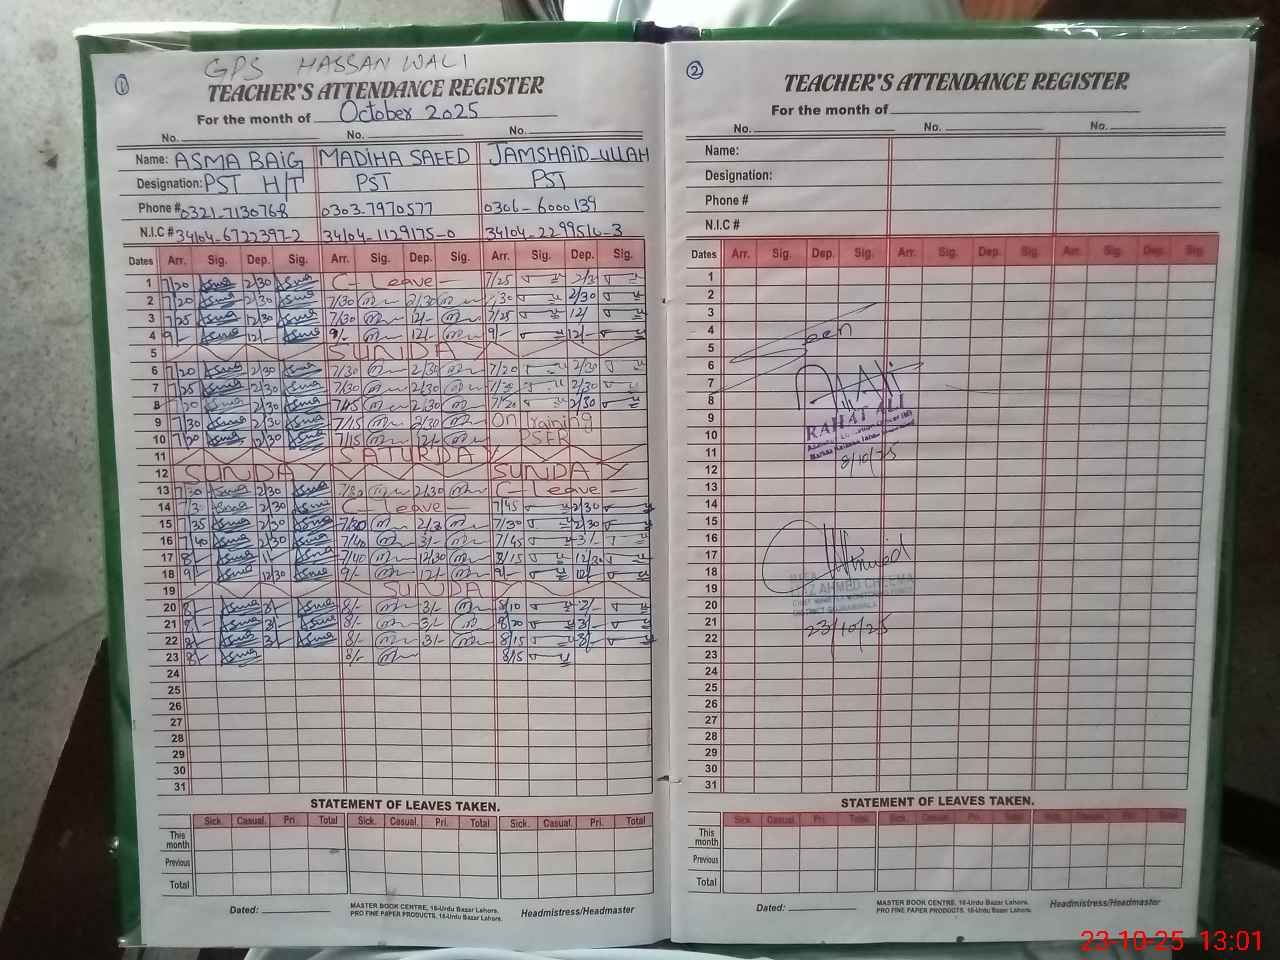 1
GPS HASSAN WALI
TEACHER'S ATTENDANCE REGISTER
For the month of October 2025
No. No. No.
Name: ASMA BAIG MADIHA SAEED JAMSHAID-ULLAH
Designation: PST H/T PST PST
Phone # 0321-7130768 0303-7970577 0306-6000139
N.I.C # 34104-6722397-2 34104-1129175-0 34104-2299510-3
Dates Arr. Sig. Dep. Sig. Arr. Sig. Dep. Sig. Arr. Sig. Dep. Sig.
1 7/20 Asma 2/30 Asma C-Leave 7/25 2/3
2 7/20 Asma 2/30 Asma 7/30 2/30 2/30
3 7/25 Asma 12/30 Asma 7/30 12/- 7/25 12/
4 9/- Asma 12/- Asma 9/- 12/- 9/- 12/-
5 SUNDAY
6 7/20 Asma 2/30 Asma 7/30 2/30 7/20 2/30
7 7/25 Asma 2/30 Asma 7/30 2/30 2/30
8 7/20 Asma 2/30 Asma 7/45 2/30 7/20 2/30
9 7/30 Asma 2/30 Asma 7/15 2/30 On Training
10 7/20 Asma 12/30 Asma 7/15 12/- PSER
11 SATURDAY
12 SUNDAY SUNDAY
13 7/30 Asma 2/30 Asma 7/30 2/30 C-Leave
14 7/3 Asma 2/30 Asma C-Leave 7/45 2/30
15 7/35 Asma 2/30 Asma 7/30 2/3 7/30 2/30
16 7/40 Asma 2/30 Asma 7/40 3/- 7/45 3/-
17 8/- Asma Asma 7/40 12/30 8/15 12/30
18 9/- Asma 12/30 Asma 9/- 12/- 9/- 12/
19 SUNDAY
20 8/- Asma 3/- Asma 8/- 3/- 8/10 2/-
21 8/- Asma 3/- Asma 8/- 3/- 8/20 3/-
22 8/- Asma 3/- Asma 8/- 3/- 8/15 3/-
23 8/- Asma 8/- 8/15
24
25
26
27
28
29
30
31
STATEMENT OF LEAVES TAKEN.
Sick. Casual. Pri. Total Sick. Casual. Pri. Total Sick. Casual. Pri. Total
This month
Previous
Total
Dated: MASTER BOOK CENTRE, 16-Urdu Bazar Lahore. Headmistress/Headmaster
PRO FINE PAPER PRODUCTS, 16-Urdu Bazar Lahore.
2
TEACHER'S ATTENDANCE REGISTER
For the month of
No. No. No.
Name:
Designation:
Phone #
N.I.C #
Dates Arr. Sig. Dep. Sig. Arr. Sig. Dep. Sig. Arr. Sig. Dep. Sig.
1
2
3
4 Seen
5
6
7
8
9 RAHAT ALI
10
11 8/10/25
12
13
14
15
16
17
18 AHMED CHEEMA
19
20
21 23/10/25
22
23
24
25
26
27
28
29
30
31
STATEMENT OF LEAVES TAKEN.
Sick. Casual. Pri. Total Sick. Casual. Pri. Total Sick. Casual. Pri. Total
This month
Previous
Total
Dated: MASTER BOOK CENTRE, 16-Urdu Bazar Lahore. Headmistress/Headmaster
PRO FINE PAPER PRODUCTS, 16-Urdu Bazar Lahore.
23-10-25 13:01